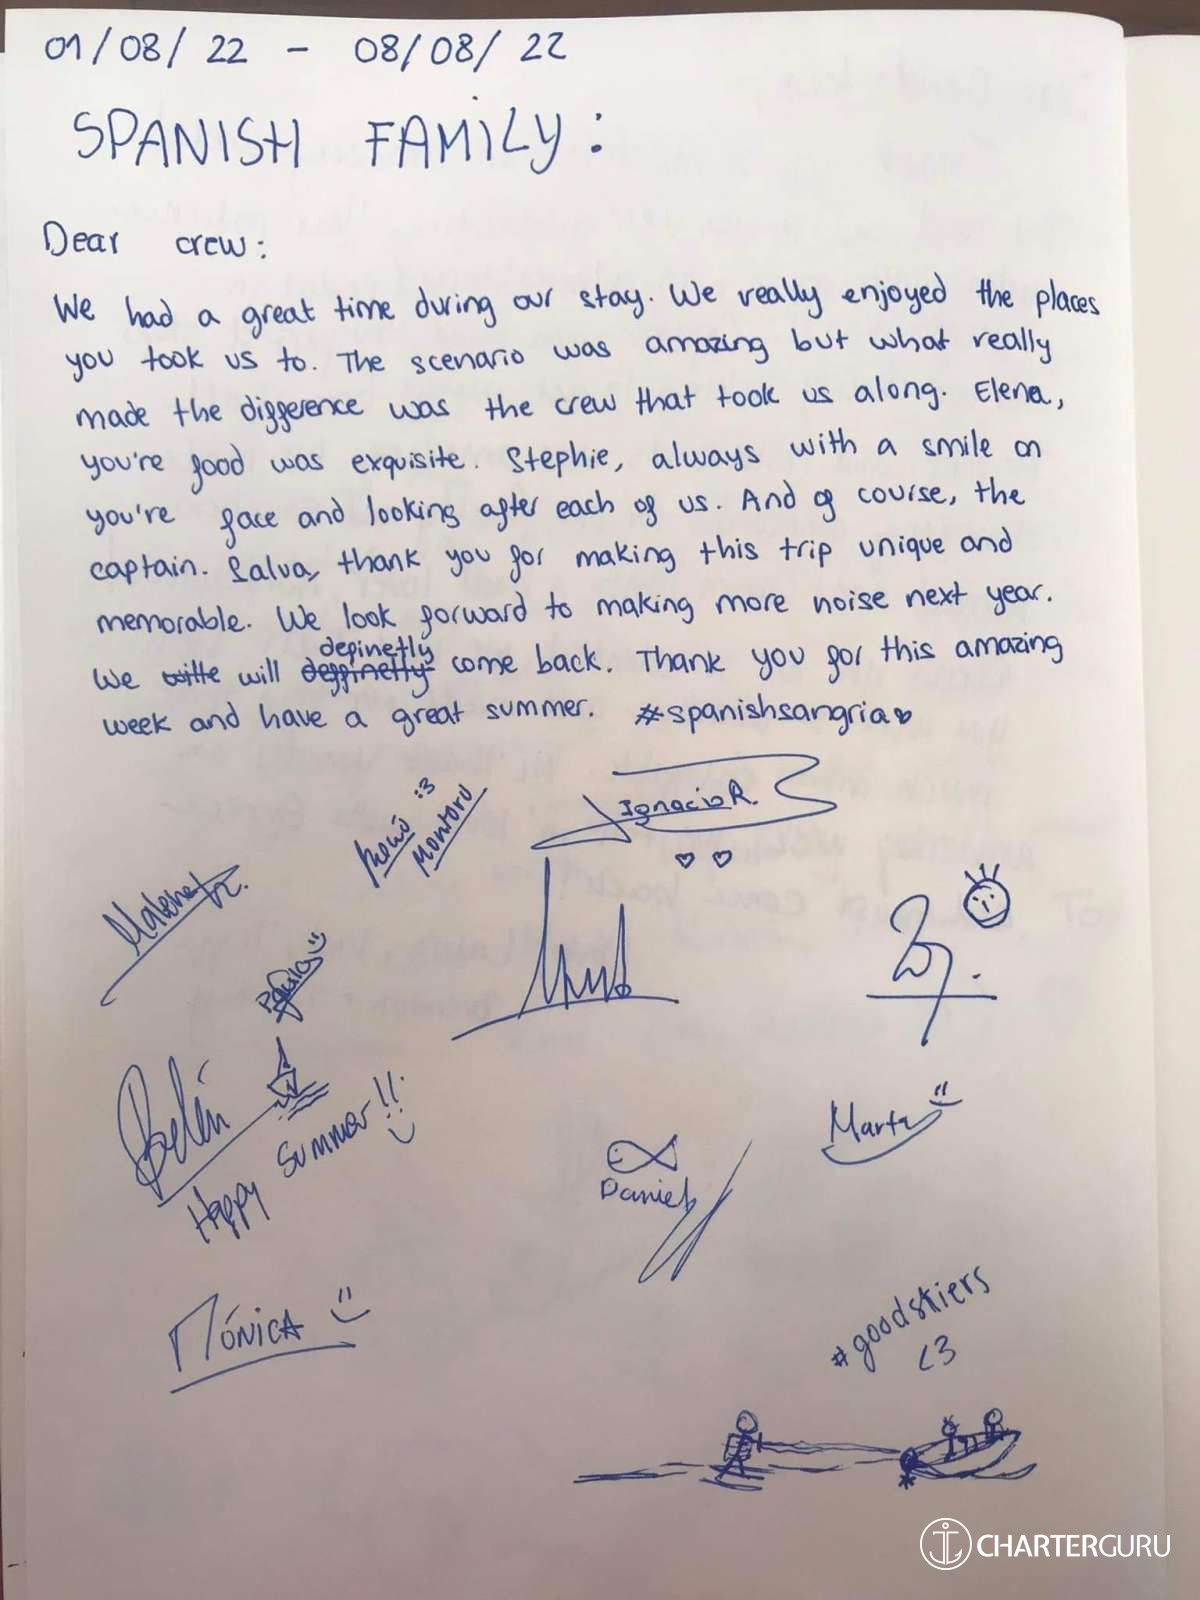 01/08/22 - 08/08/22
SPANISH FAMILY:
Dear crew:
We had a great time during our stay. We really enjoyed the places
you took us to. The scenario was amazing but what really
made the difference was the crew that took us along. Elena,
you're food was exquisite. Stephie, always with a smile on
you're face and looking after each of us. And of course, the
captain. Salva, thank you for making this trip unique and
memorable. We look forward to making more noise next year.
definetly
We will come back. Thank you for this amazing
week and have a great summer. #spanishsangria
Montoro :3
Ignacio R.
Paula
Belén
Happy Summer!!
Marta
Daniel
MÓNICA
#goodskiers
<3
CHARTERGURU